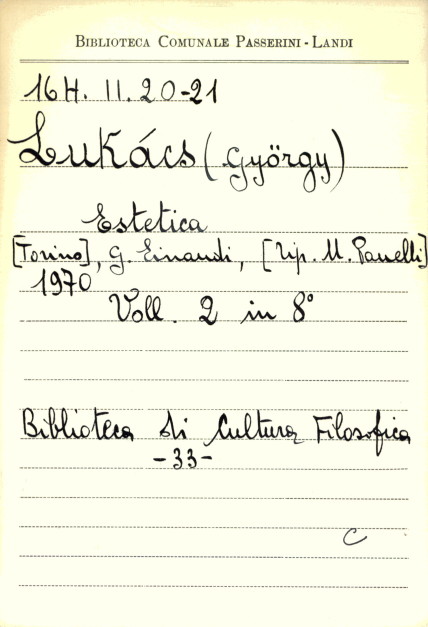 BIBLIOTECA COMUNALE PASSERINI-LANDI
16H. II. 20-21
Lukács (György)
Estetica
[Torino], G. Einaudi, [Tip. U. Panelli]
1970
Voll. 2 in 8°
Biblioteca di Cultura Filosofica
-33-
C